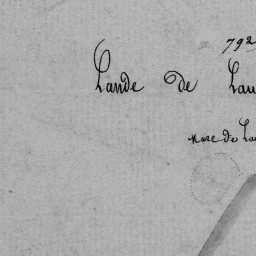 792
Lande de Lau
Mare de La